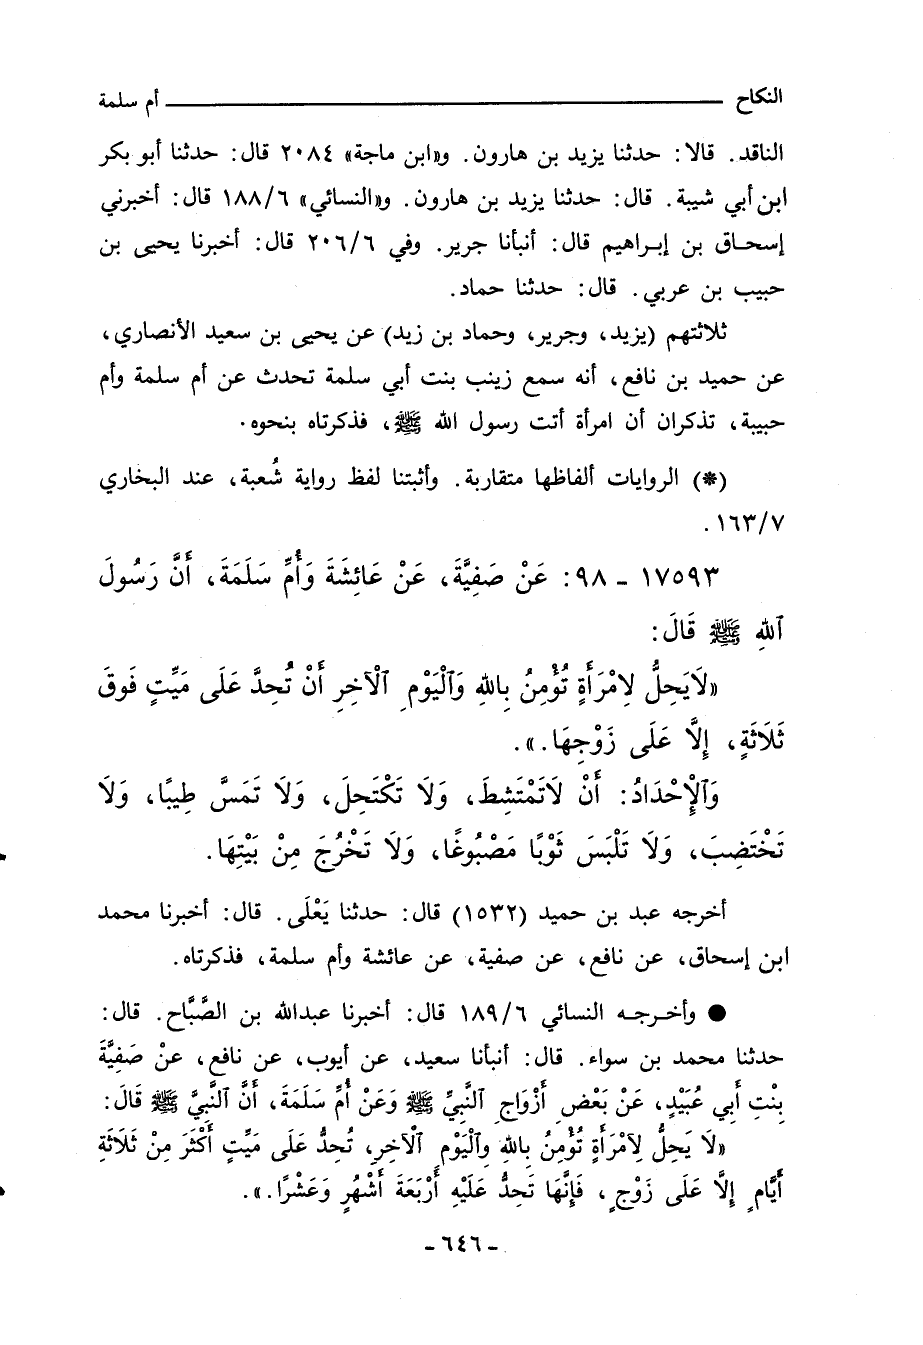 النكاح ــــــ أم سلمة
الناقد. قالا: حدثنا يزيد بن هارون. و«ابن ماجة» ٢٠٨٤ قال: حدثنا أبو بكر
ابن أبي شيبة. قال: حدثنا يزيد بن هارون. و«النسائي» ١٨٨/٦ قال: أخبرني
إسحاق بن إبراهيم قال: أنبأنا جرير. وفي ٢٠٦/٦ قال: أخبرنا يحيى بن
حبيب بن عربي. قال: حدثنا حماد.
ثلاثتهم (يزيد، وجرير، وحماد بن زيد) عن يحيى بن سعيد الأنصاري،
عن حميد بن نافع، أنه سمع زينب بنت أبي سلمة تحدث عن أم سلمة وأم
حبيبة، تذكران أن امرأة أتت رسول الله ﷺ، فذكرتاه بنحوه.
(*) الروايات ألفاظها متقاربة. وأثبتنا لفظ رواية شُعبة، عند البخاري
١٦٣/٧.
١٧٥٩٣ - ٩٨: عَنْ صَفِيَّةَ، عَنْ عَائِشَةَ وَأُمِّ سَلَمَةَ، أَنَّ رَسُولَ
ٱللهِ ﷺ قَالَ:
«لَايَحِلُّ لِامْرَأَةٍ تُؤْمِنُ بِاللهِ وَٱلْيَوْمِ ٱلْآخِرِ أَنْ تُحِدَّ عَلَى مَيِّتٍ فَوقَ
ثَلَاثَةٍ، إِلَّا عَلَى زَوْجِهَا.».
وَٱلْإِحْدَادُ: أَنْ لَاتَمْتَشِطَ، وَلَا تَكْتَحِلَ، وَلَا تَمَسَّ طِيبًا، وَلَا
تَخْتَضِبَ، وَلَا تَلْبَسَ ثَوْبًا مَصْبُوغًا، وَلَا تَخْرُجَ مِنْ بَيْتِهَا.
أخرجه عبد بن حميد (١٥٣٢) قال: حدثنا يَعْلَى. قال: أخبرنا محمد
ابن إسحاق، عن نافع، عن صفية، عن عائشة وأم سلمة، فذكرتاه.
● وأخرجه النسائي ١٨٩/٦ قال: أخبرنا عبدالله بن الصَّبَّاح. قال:
حدثنا محمد بن سواء. قال: أنبأنا سعيد، عن أيوب، عن نافع، عَنْ صَفِيَّةَ
بِنْتِ أَبِي عُبَيْدٍ، عَنْ بَعْضِ أَزْوَاجِ ٱلنَّبِيِّ ﷺ وَعَنْ أُمِّ سَلَمَةَ، أَنَّ ٱلنَّبِيَّ ﷺ قَالَ:
«لَا يَحِلُّ لِامْرَأَةٍ تُؤْمِنُ بِاللهِ وٱلْيَوْمِ ٱلْآخِرِ، تُحِدُّ عَلَى مَيِّتٍ أَكْثَرَ مِنْ ثَلَاثَةِ
أَيَّامٍ إِلَّا عَلَى زَوْجٍ، فَإِنَّهَا تَحِدُّ عَلَيْهِ أَرْبَعَةَ أَشْهُرٍ وَعَشْرًا.».
- ٦٤٦ -